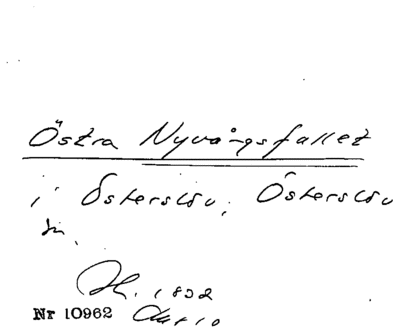 Östra Nyvångsfallet
i Österslöv, Österslöv
sn.
H. 1832
Nr 10962